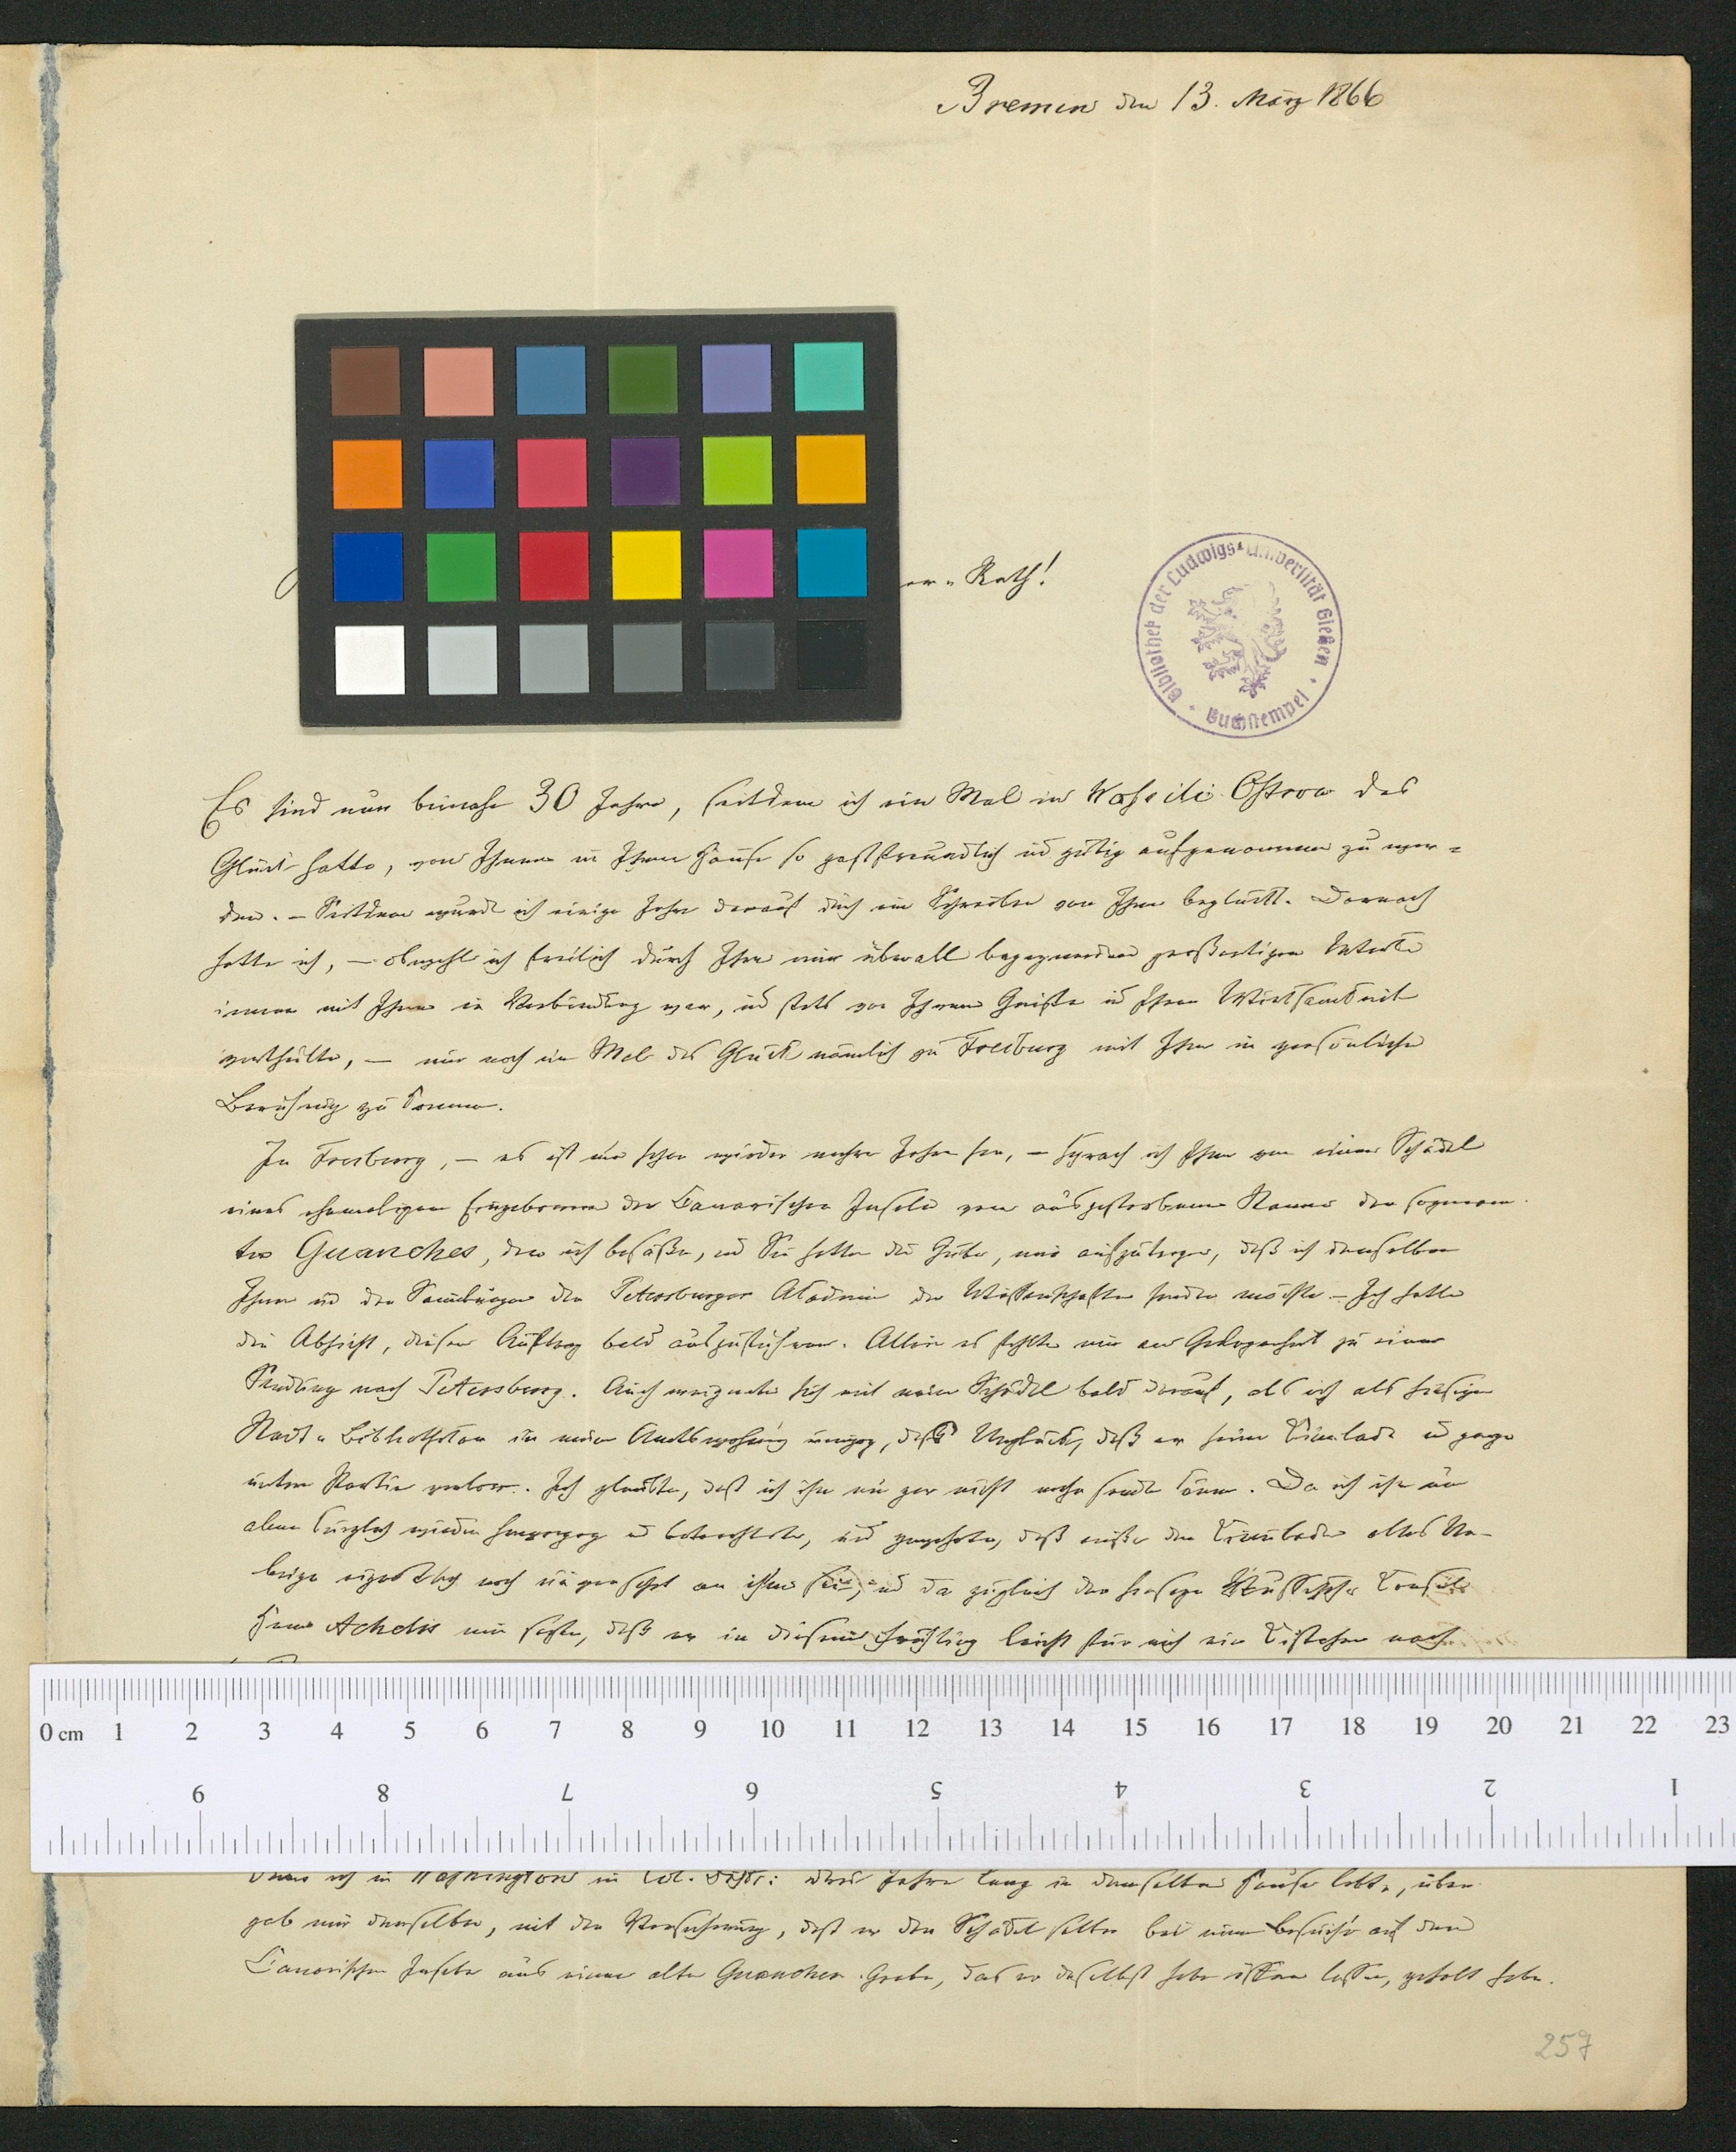 Bremen den 13. März 1866
er-Rath!
Bibliothek der Ludwigs-Universität Gießen
Buchstempel
Es sind nun beinahe 30 Jahre, seitdem ich ein Mal in Wassili Ostrow das
Glück hatte, von Ihnen in Ihrem Hause so gastfreundlich und gütig aufgenommen zu wer=
den. – Seitdem wurde ich einige Jahre darauf durch ein Schreiben von Ihnen beglückt. Darnach
hatte ich, – obwohl ich freilich durch Ihre mir überall begegnenden großartigen
immer mit Ihnen in Verbindung war, und stets von Ihrem Geiste und Ihrer Wirksamkeit
– nur noch ein Mal das Glück nämlich zu Freiburg mit Ihnen in persönliche
Berührung zu kommen.
In Freiburg, – es ist nun schon wieder mehre Jahre her, – sprach ich Ihnen von einem Schädel
eines ehemaligen Eingebornen der Canarischen Inseln vom ausgestorbenen Stamme der sogenann
ten Guanches, den ich besäße, und Sie hatten die Güte, mir aufzutragen, daß ich denselben
Ihnen und den Sammlungen der Petersburger Akademie der Wissenschaften senden möchte. – Ich hatte
die Absicht, diesen Auftrag bald auszuführen. Allein es fehlte mir an Gelegenheit zu einer
Sendung nach Petersburg. Auch ereignete sich mit meinem Schädel bald darauf, als ich als hiesiger
Stadt-Bibliothekar in meine Amtswohnung einzog, das Unglück, daß er seine Kinnlade und ganze
untere Partie verlor. Ich glaubte, daß ich ihn nun gar nicht mehr senden könne. Da ich ihn nun
aber kürzlich wieder hervorzog und betrachtete, und gewahrte, daß außer der Kinnlade alles Ue-
brige eigentlich noch unversehrt an ihm sei, und da zugleich der hiesige Russische Consul
Herr Achelis mir sagte, daß er in diesem Frühling leicht für mich ein Kistchen nach
ich in Washington in Col. Distr: drei Jahre lang in demselben Hause lebte, über
gab mir denselben, mit der Versicherung, daß er den Schädel selber bei einem Besuche auf den
Canarischen Inseln aus einem alten Guanchen-Grabe, das er daselbst habe öffnen lassen, geholt habe.
257
0 cm 1 2 3 4 5 6 7 8 9 10 11 12 13 14 15 16 17 18 19 20 21 22 23
9 8 7 6 5 4 3 2 1